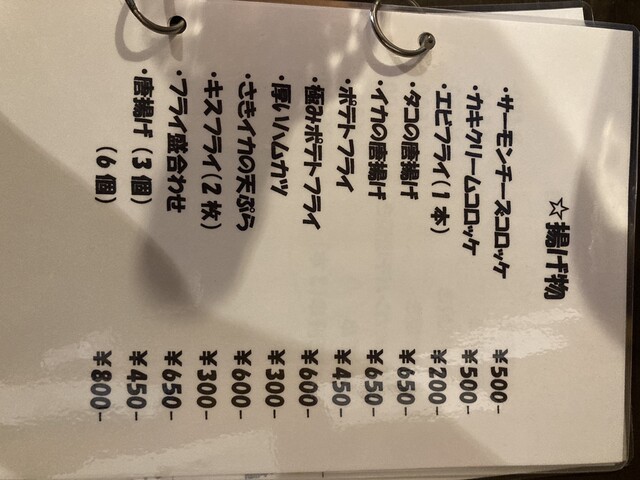 ☆揚げ物
・サーモンチーズコロッケ ¥500-
・カキクリームコロッケ ¥500-
・エビフライ(1本) ¥200-
・タコの唐揚げ ¥650-
・イカの唐揚げ ¥650-
・ポテトフライ ¥450-
・極みポテトフライ ¥600-
・厚いハムカツ ¥300-
・さきイカの天ぷら ¥600-
・キスフライ(2枚) ¥300-
・フライ盛合わせ ¥650-
・唐揚げ(3個) ¥450-
(6個) ¥800-